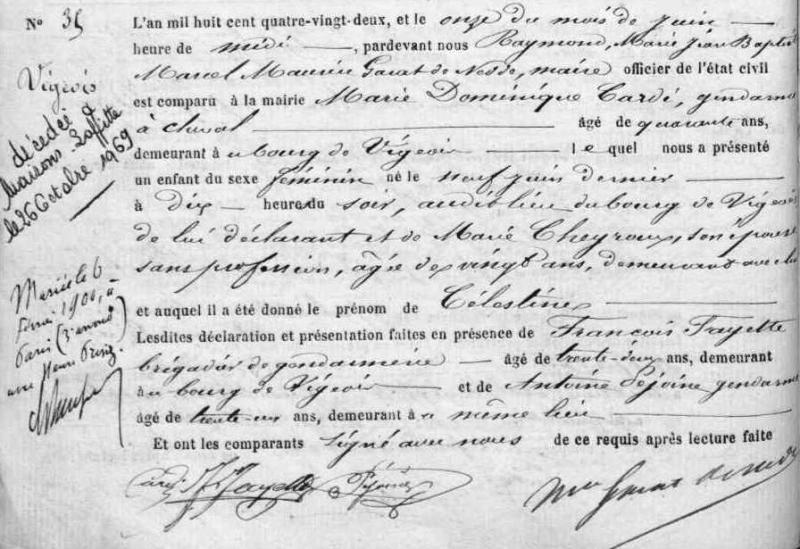 N° 35
Vigeois
décédée à
Maisons Laffitte
le 26 Octobre 1969
Mariée le 6
1900, à
Paris (3e arrondt)
avec Henri
L'an mil huit cent quatre-vingt-deux, et le onze du mois de Juin
heure de midi, pardevant nous Raymond, Marie Jean Baptiste
Marcel Maurice Garat de Nedde, maire officier de l'état civil
est comparu à la mairie Marie Dominique Cardi, gendarme
à cheval âgé de quarante ans,
demeurant à u bourg de Vigeois lequel nous a présenté
un enfant du sexe féminin né le neuf juin dernier
à dix heure du soir, audit lieu du bourg de Vigeois
de lui déclarant et de Marie Cheyroux, son épouse
sans profession, âgée de vingt ans, demeurant avec lui
et auquel il a été donné le prénom de Célestine
Lesdites déclaration et présentation faites en présence de François Fayette
brigadier de gendarmerie âgé de trente-deux ans, demeurant
à u bourg de Vigeois et de Antoine Péjoine gendarme
âgé de trente-un ans, demeurant à u même lieu
Et ont les comparants signé avec nous de ce requis après lecture faite
Cardi Fayette Péjoine